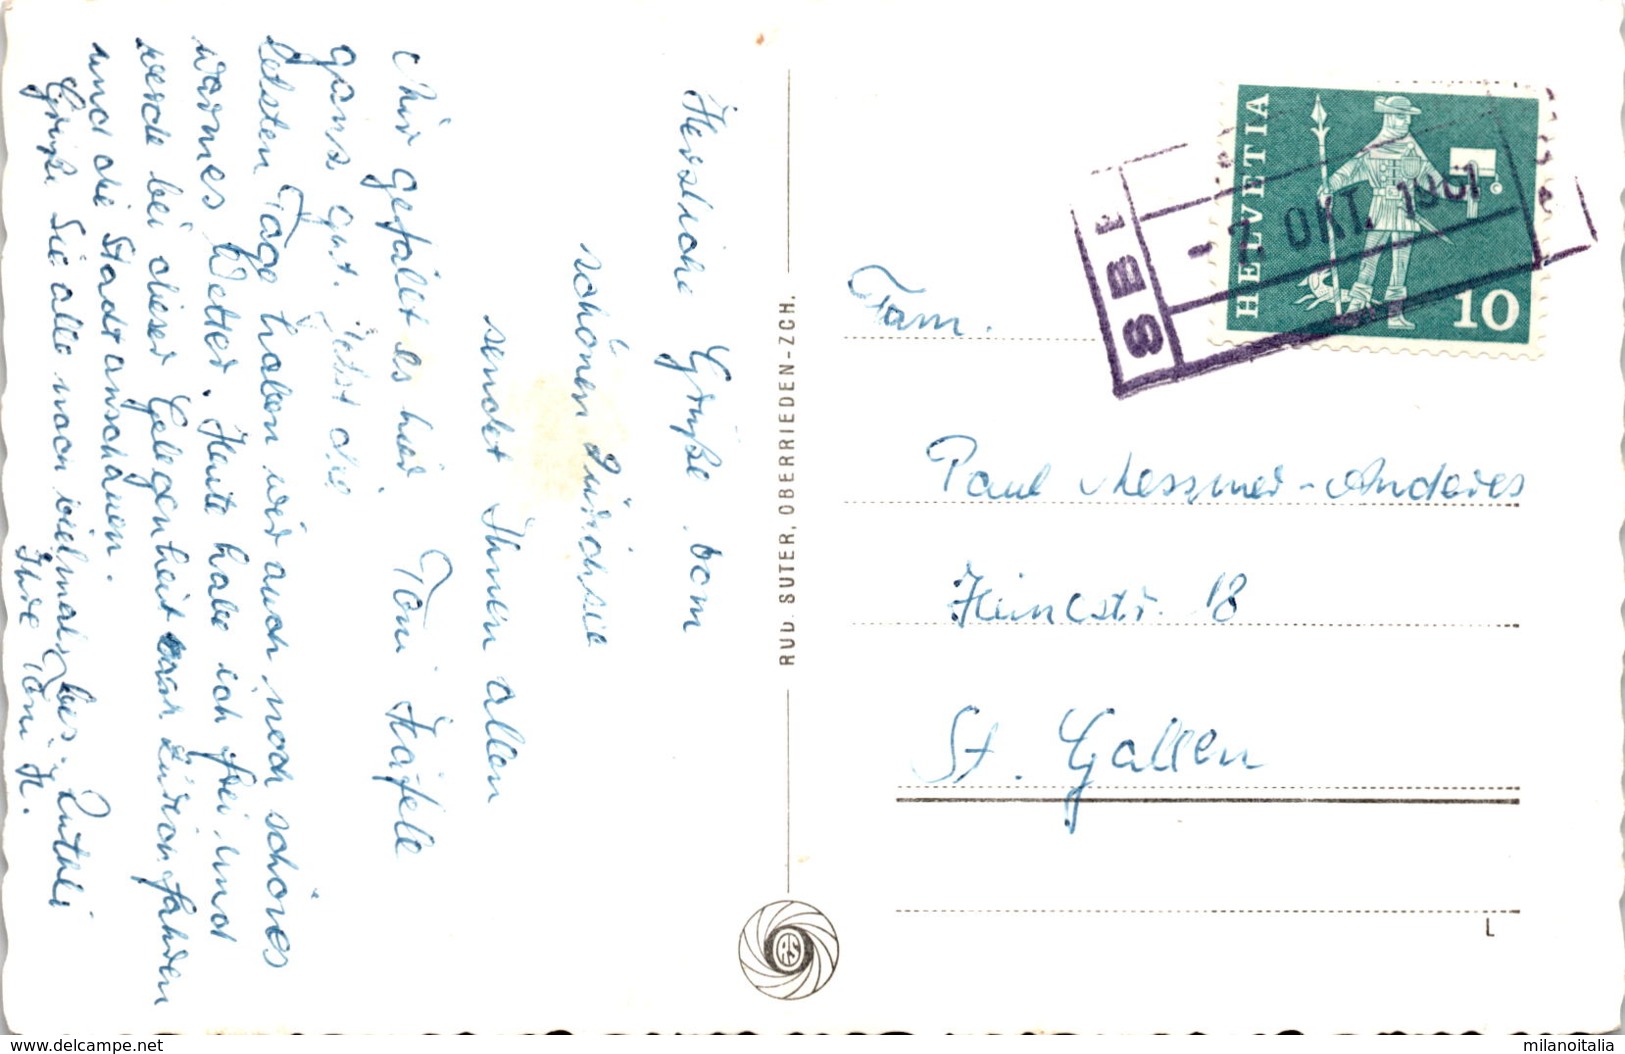 Herzliche Grüße vom
schönen Zürichsee
sendet Ihnen allen
Toni Häfele
Mir gefällt es hier
ganz gut. Jetzt die
letzten Tage haben wir auch noch schönes
warmes Wetter. Heute habe ich frei und
werde bei dieser Gelegenheit nach Zürich fahren
und die Stadt anschauen.
Grüße Sie alle noch vielmals, bes. Ruthli
Ihre Toni H.
RUD. SUTER, OBERRIEDEN-ZCH.
HELVETIA
10
SBB
- 2. OKT. 1961
Fam.
Paul Messmer-Anderes
Heinestr. 18
St. Gallen
L
www.delcampe.net
milanoitalia